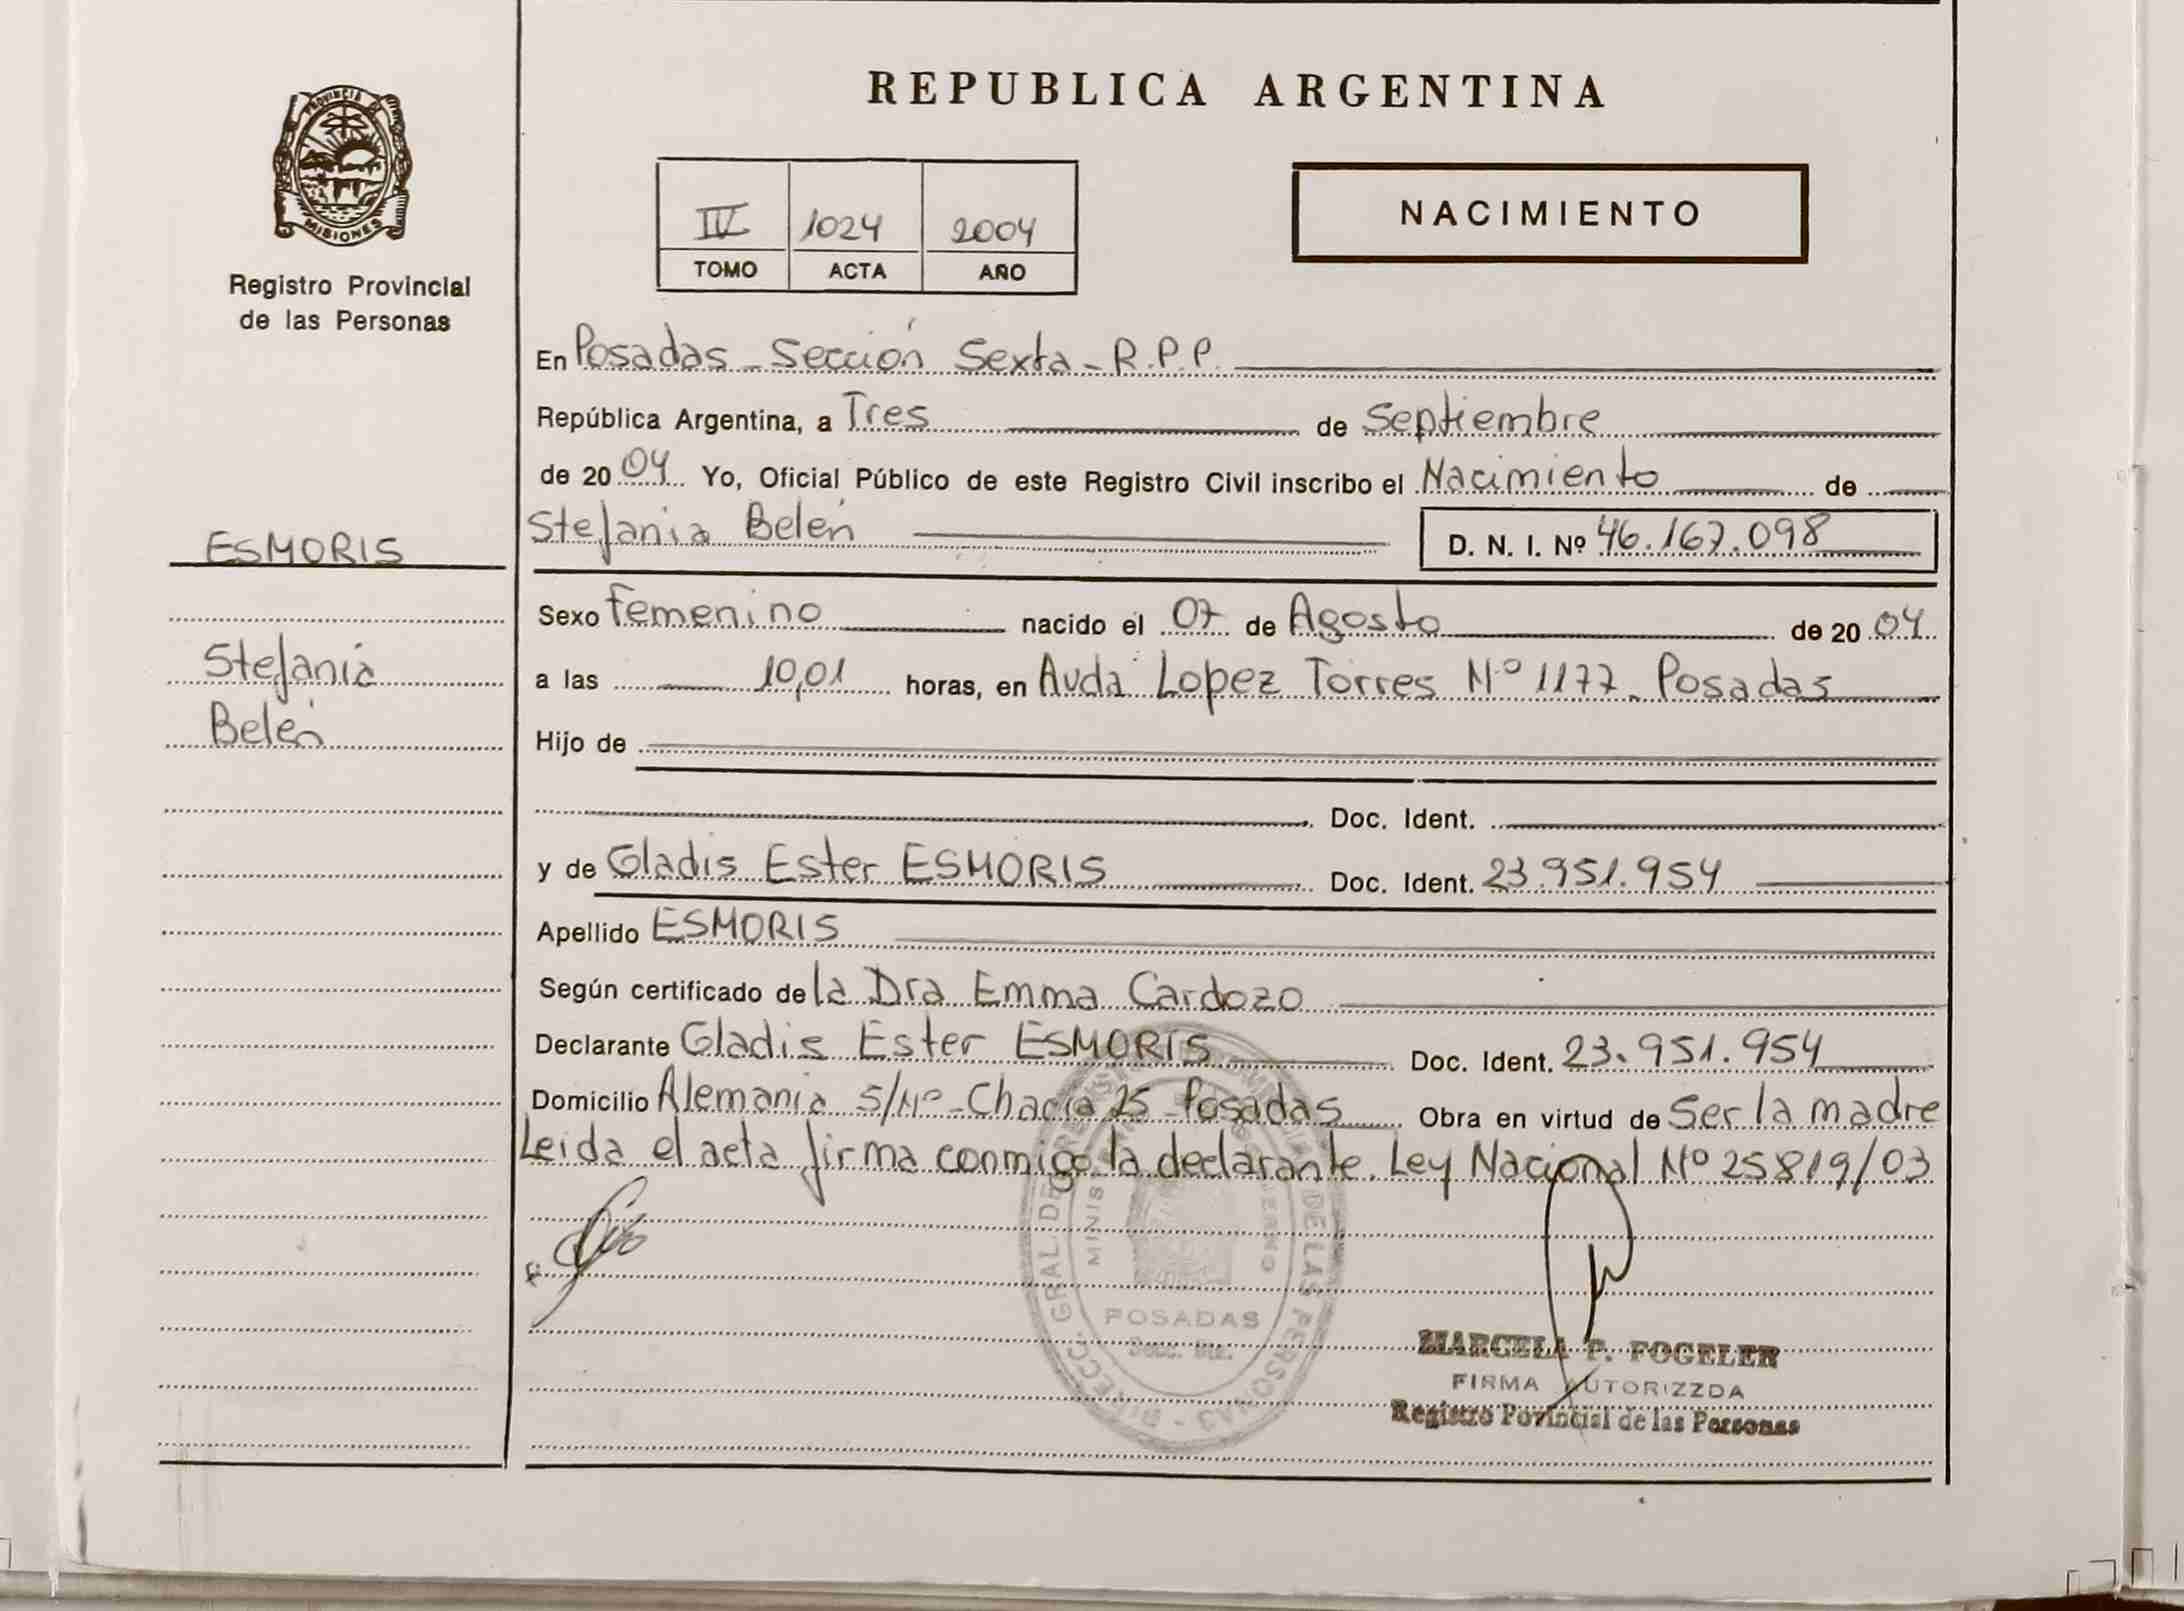 REPUBLICA ARGENTINA
PROVINCIA DE
MISIONES
Registro Provincial
de las Personas
IV 1024 2004
TOMO ACTA AÑO
NACIMIENTO
En Posadas - Sección Sexta - R.P.P.
República Argentina, a Tres de Septiembre
de 2004 Yo, Oficial Público de este Registro Civil inscribo el Nacimiento de
Stefania Belén D. N. I. Nº 46.167.098
ESMORIS
Stefania
Belén
Sexo Femenino nacido el 07 de Agosto de 2004
a las 10,01 horas, en Avda Lopez Torres Nº 1177 - Posadas
Hijo de
Doc. Ident.
y de Gladis Ester ESMORIS Doc. Ident. 23.951.954
Apellido ESMORIS
Según certificado de la Dra Emma Cardozo
Declarante Gladis Ester ESMORIS Doc. Ident. 23.951.954
Domicilio Alemania S/Nº - Chacra 25 - Posadas Obra en virtud de Ser la madre
Leida el acta firma conmigo la declarante. Ley Nacional Nº 25819/03
POSADAS
MARCELA P. FOGELER
FIRMA AUTORIZZDA
Registro Povincial de las Personas